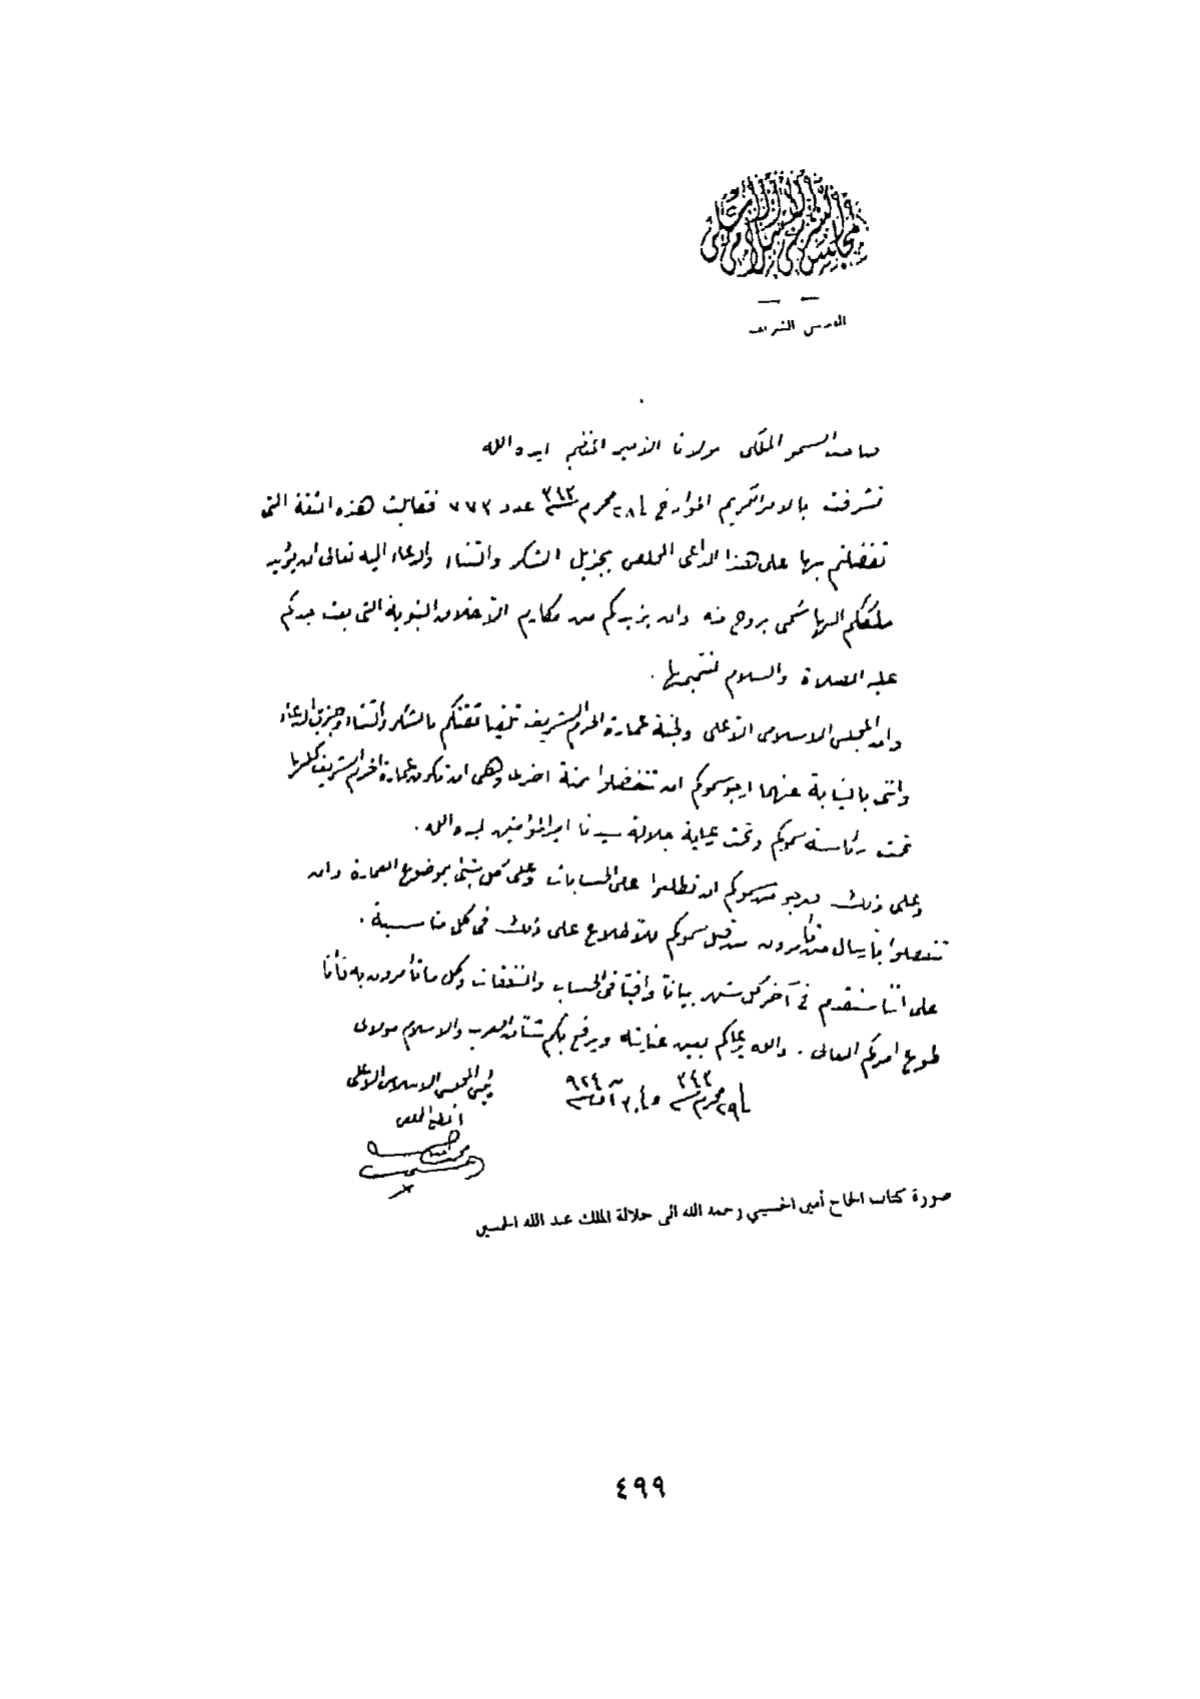 المجلس الشرعي الاسلامي الاعلى
القدس الشريف
صاحب السمو الملكي مولانا الأمير المعظم ايده الله
تشرفت بالامر الكريم المؤرخ ٢٨ محرم عدد ٧٧٣ فقابلت هذه الثقة التي
تفضلتم بها على هذا الداعي المخلص بجزيل الشكر والثناء والدعاء اليه تعالى ان يؤيد
ملككم الهاشمي بروح منه وان يزيدكم من مكارم الأخلاق النبوية التي بعث جدكم
عليه الصلاة والسلام لتتميمها .
وان المجلس الاسلامي الأعلى ولجنة عمارة الحرم الشريف تلقيا ثقتكم بالشكر والثناء وجزيل الدعاء
وانني بالنيابة عنهما ارجو سموكم ان تتفضلوا بمنة اخرى وهي ان تكون عمارة الحرم الشريف كلها
تحت رئاسة سموكم وتحت رعاية جلالة سيدنا امير المؤمنين ايده الله .
وعلى ذلك نرجو من سموكم ان تطلعوا على الحسابات وعلى كل شيء بموضوع العمارة وان
تتفضلوا بارسال من تأمرون من قبل سموكم للاطلاع على ذلك في كل مناسبة .
على اننا سنقدم في آخر كل شهر بياناً وافياً في الحساب والنفقات وكل ما تأمرون به فأنا
طوع امركم العالي . والله يرعاكم بعين عنايته ويرفع بكم شأن العرب والاسلام مولاي
٢٩ محرم سنة ٣٤٣ و ٣٠ آب سنة ٩٢٤
رئيس المجلس الاسلامي الأعلى
المخلص
صورة كتاب الحاج أمين الحسيني رحمه الله الى جلالة الملك عبد الله الحسين
٤٩٩